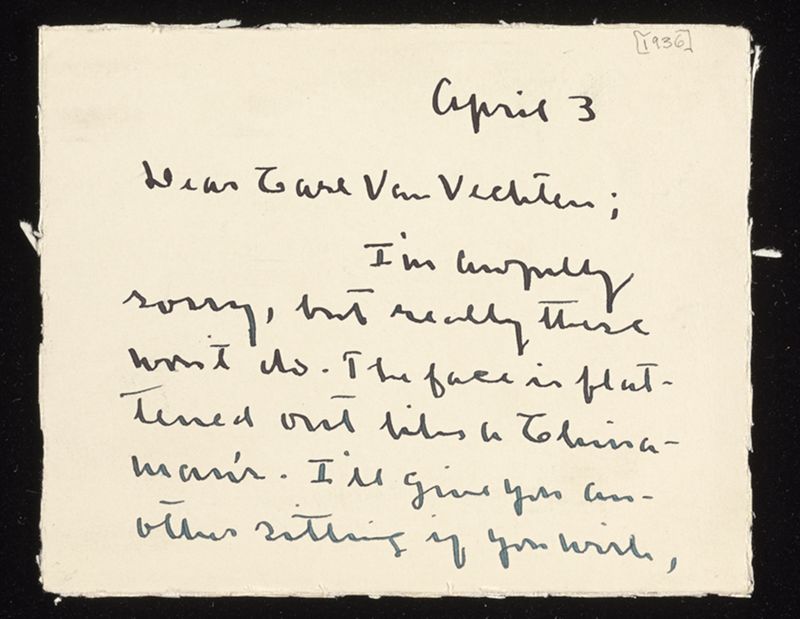 [1936]
April 3
Dear Carl Van Vechten;
I'm awfully
sorry, but really these
won't do. The face is flat-
tened out like a China-
man's. I'll give you an-
other sitting if you wish,